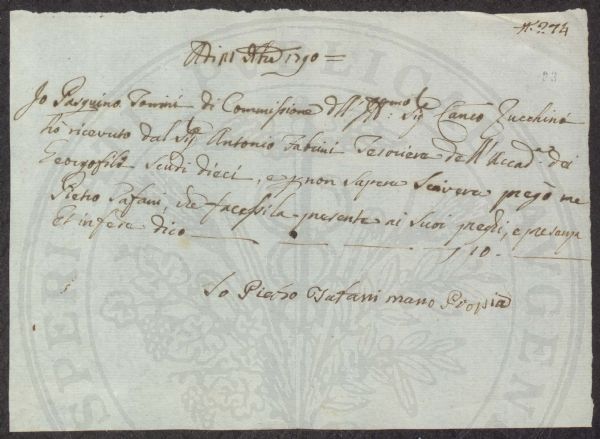 N.° 274
23
Adi 11 Xbre 1790 =
Io Pasquino Tonini di Commissione dell' Ill:mo Sig:re Can:co Zucchini
hò ricevuto dal Sig:re Antonio Fabrini Tesoriere dell' Accad:a dei
Georgofili Scudi dieci, e p non sapere scrivere pregò me
Pietro Tafani, che facessi la presente ai suoi preghi, e presenza
et in fede dico — — — 10. —
Io Pietro Tafani mano Propria